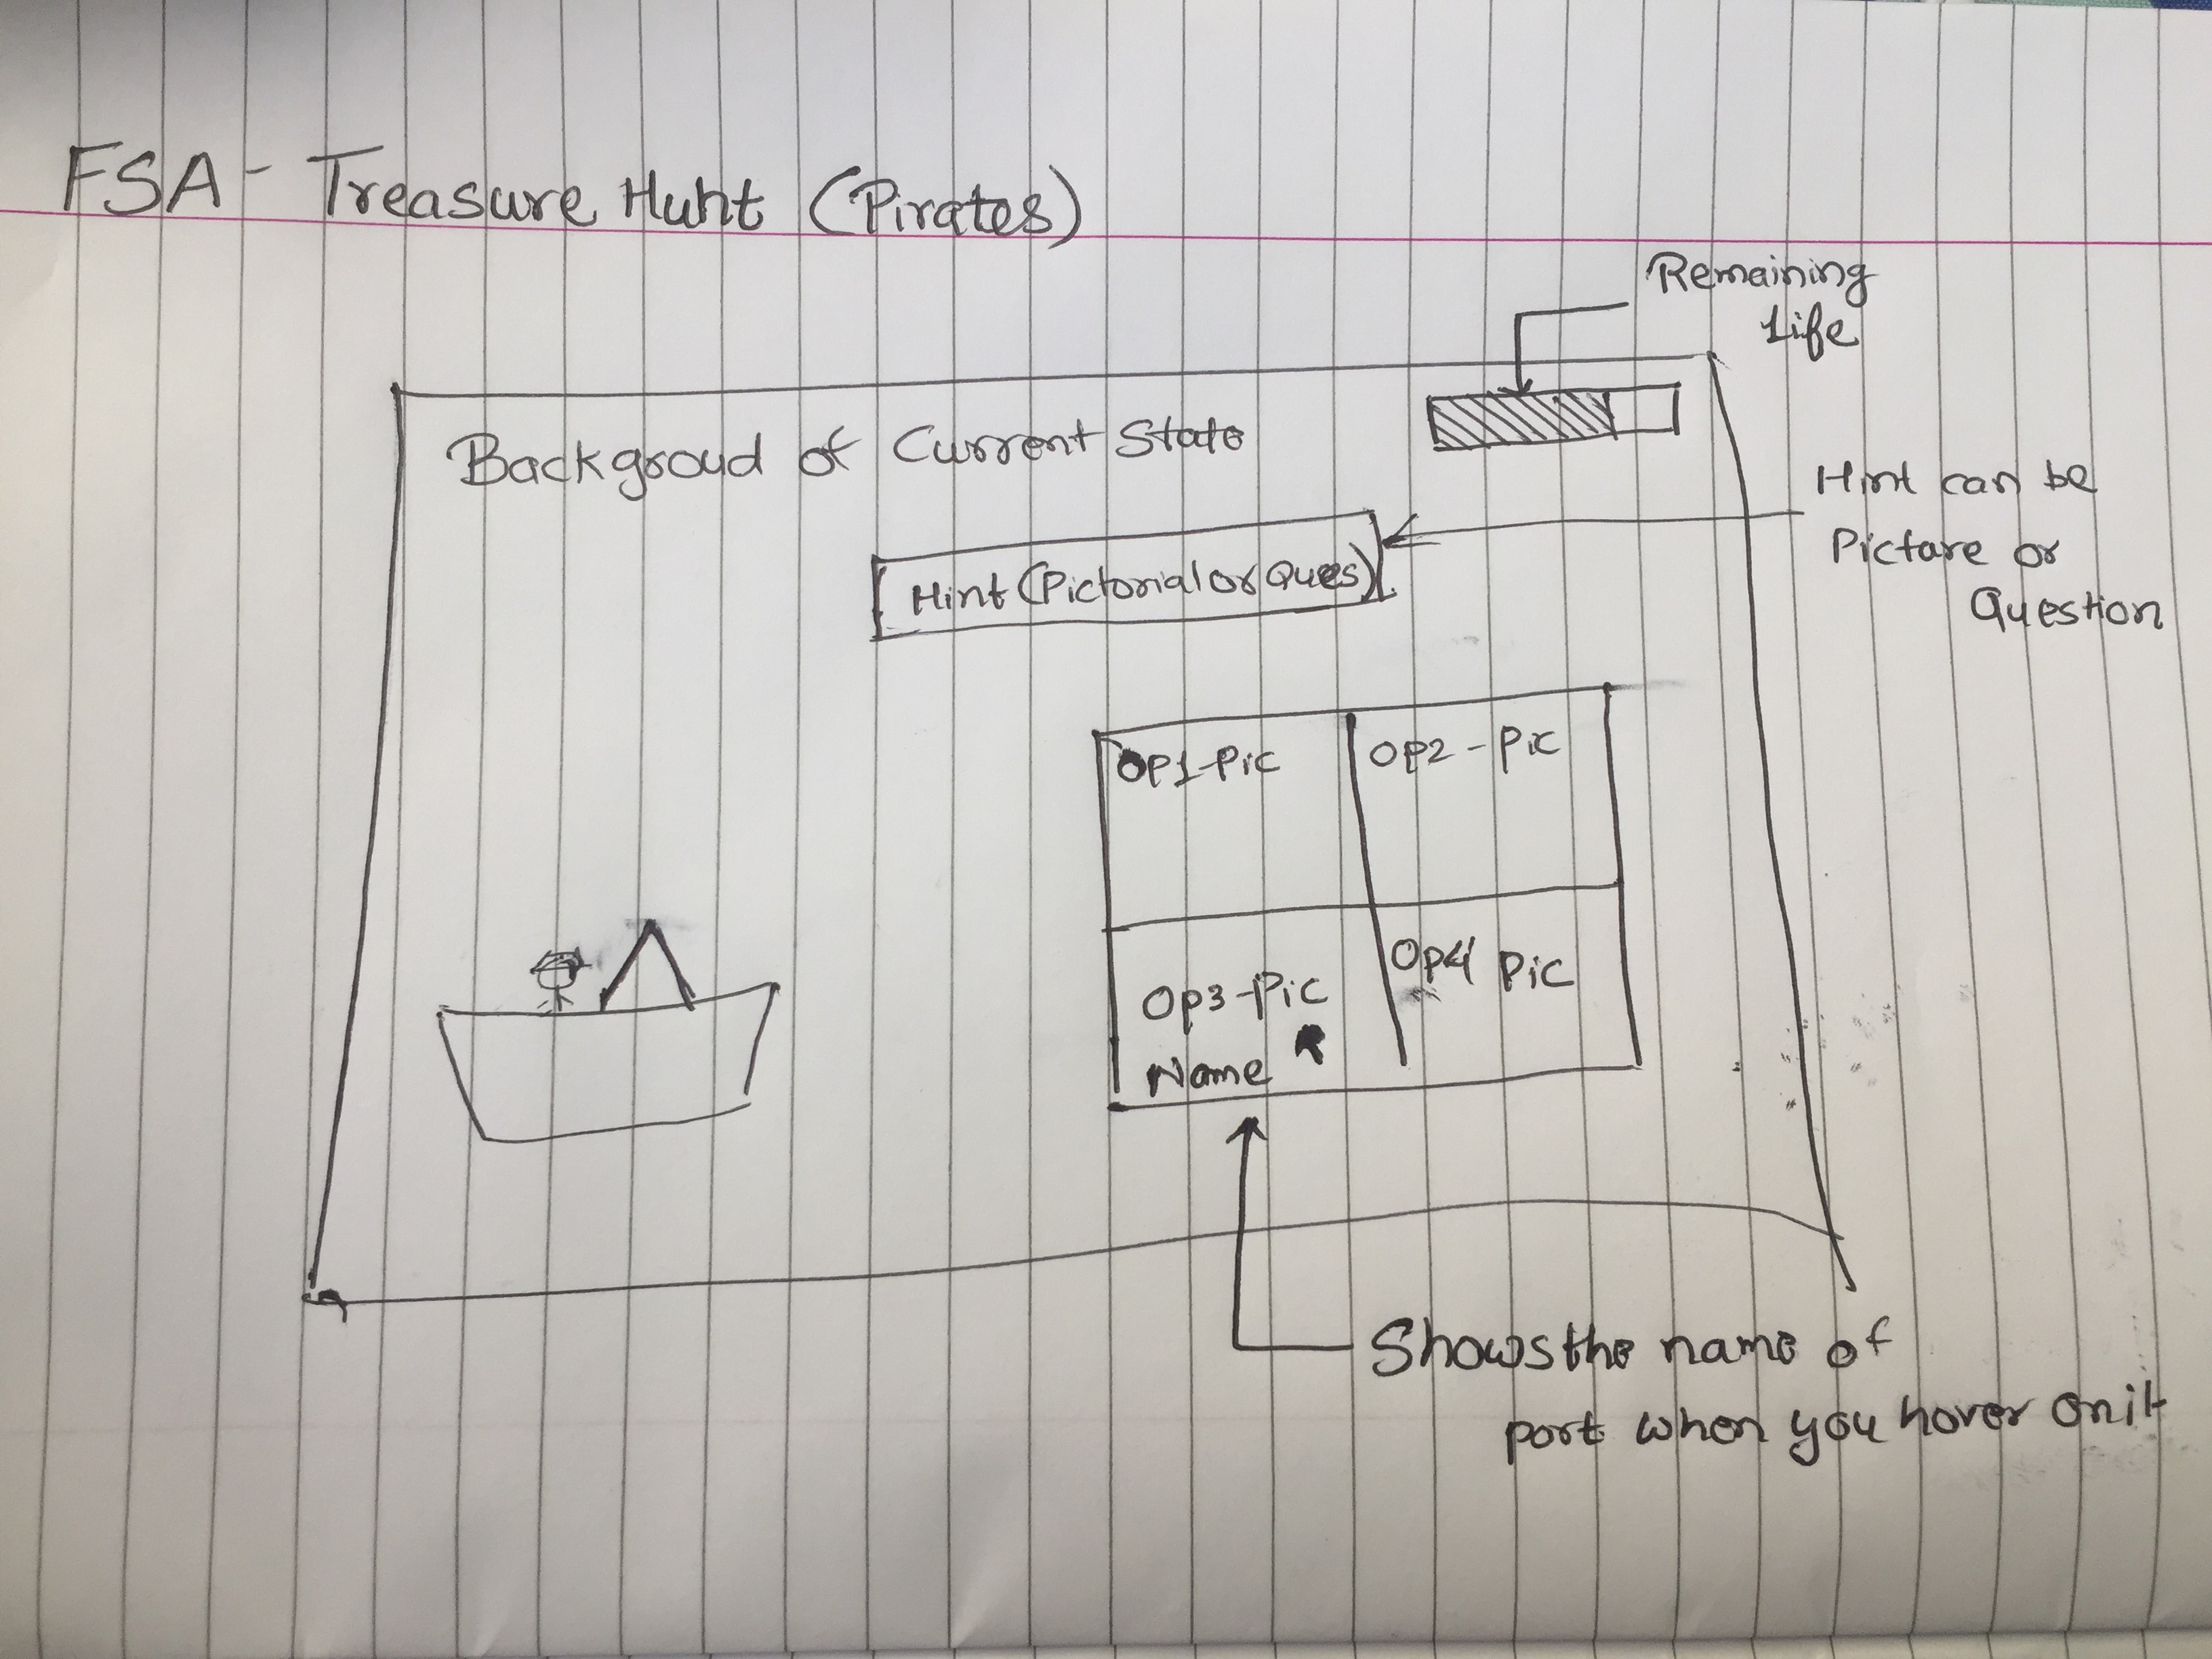 FSA - Treasure Hunt (Pirates)
Remaining
Life
Backgroud of Current State
Hint can be
Pictare or
Question
Hint (Pictorial or Ques)
Op1-Pic
Op2 - Pic
Op3-Pic
Name
Op4 Pic
Shows the name of
port when you hover on it